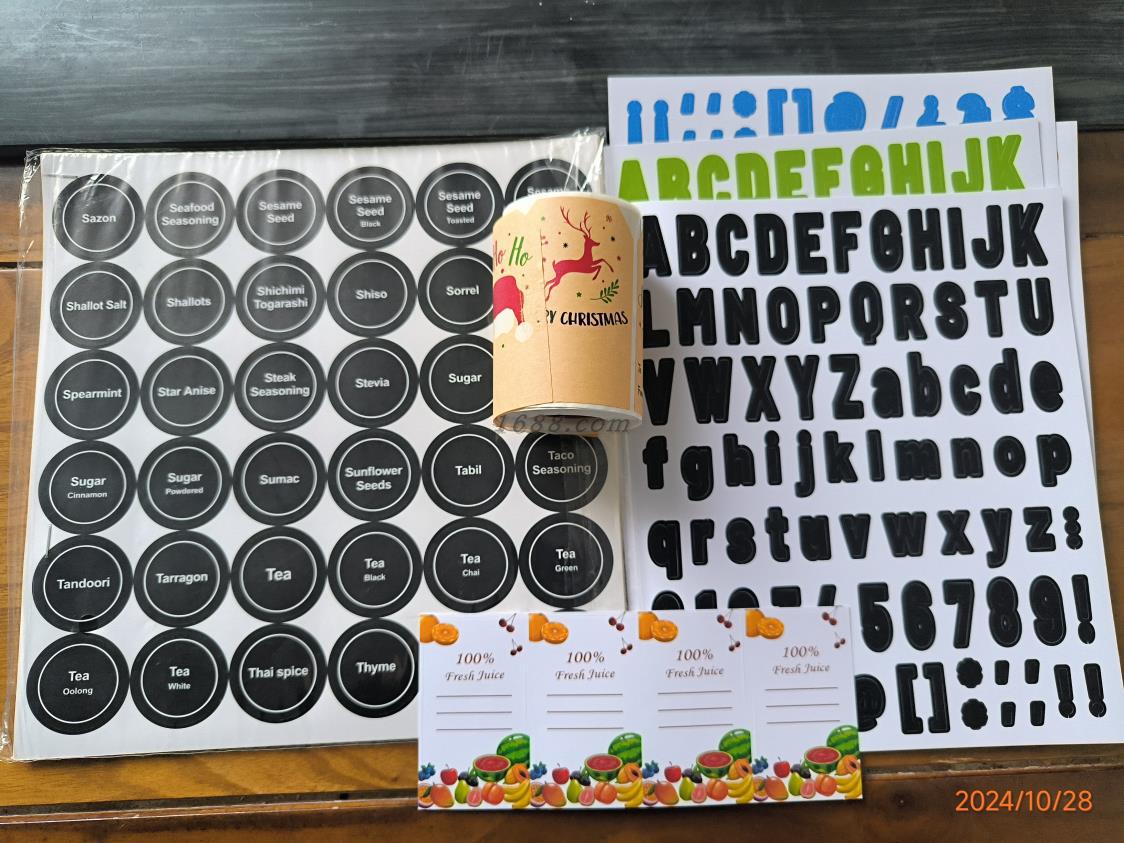 Sazon
Seafood
Seasoning
Sesame
Seed
Sesame
Seed
Black
Sesame
Seed
Toasted
Sesame
Shallot Salt
Shallots
Shichimi
Togarashi
Shiso
Sorrel
Spearmint
Star Anise
Steak
Seasoning
Stevia
Sugar
Sugar
Cinnamon
Sugar
Powdered
Sumac
Sunflower
Seeds
Tabil
Taco
Seasoning
Tandoori
Tarragon
Tea
Tea
Black
Tea
Chai
Tea
Green
Tea
Oolong
Tea
White
Thai spice
Thyme
Ho
CHRISTMAS
1688.com
ABCDEFGHIJK
ABCDEFGHIJK
LMNOPQRSTU
VWXYZabcde
fghijklmnop
qrstuvwxyz:
56789!
@[]
100%
Fresh Juice
100%
Fresh Juice
100%
Fresh Juice
100%
Fresh Juice
2024/10/28